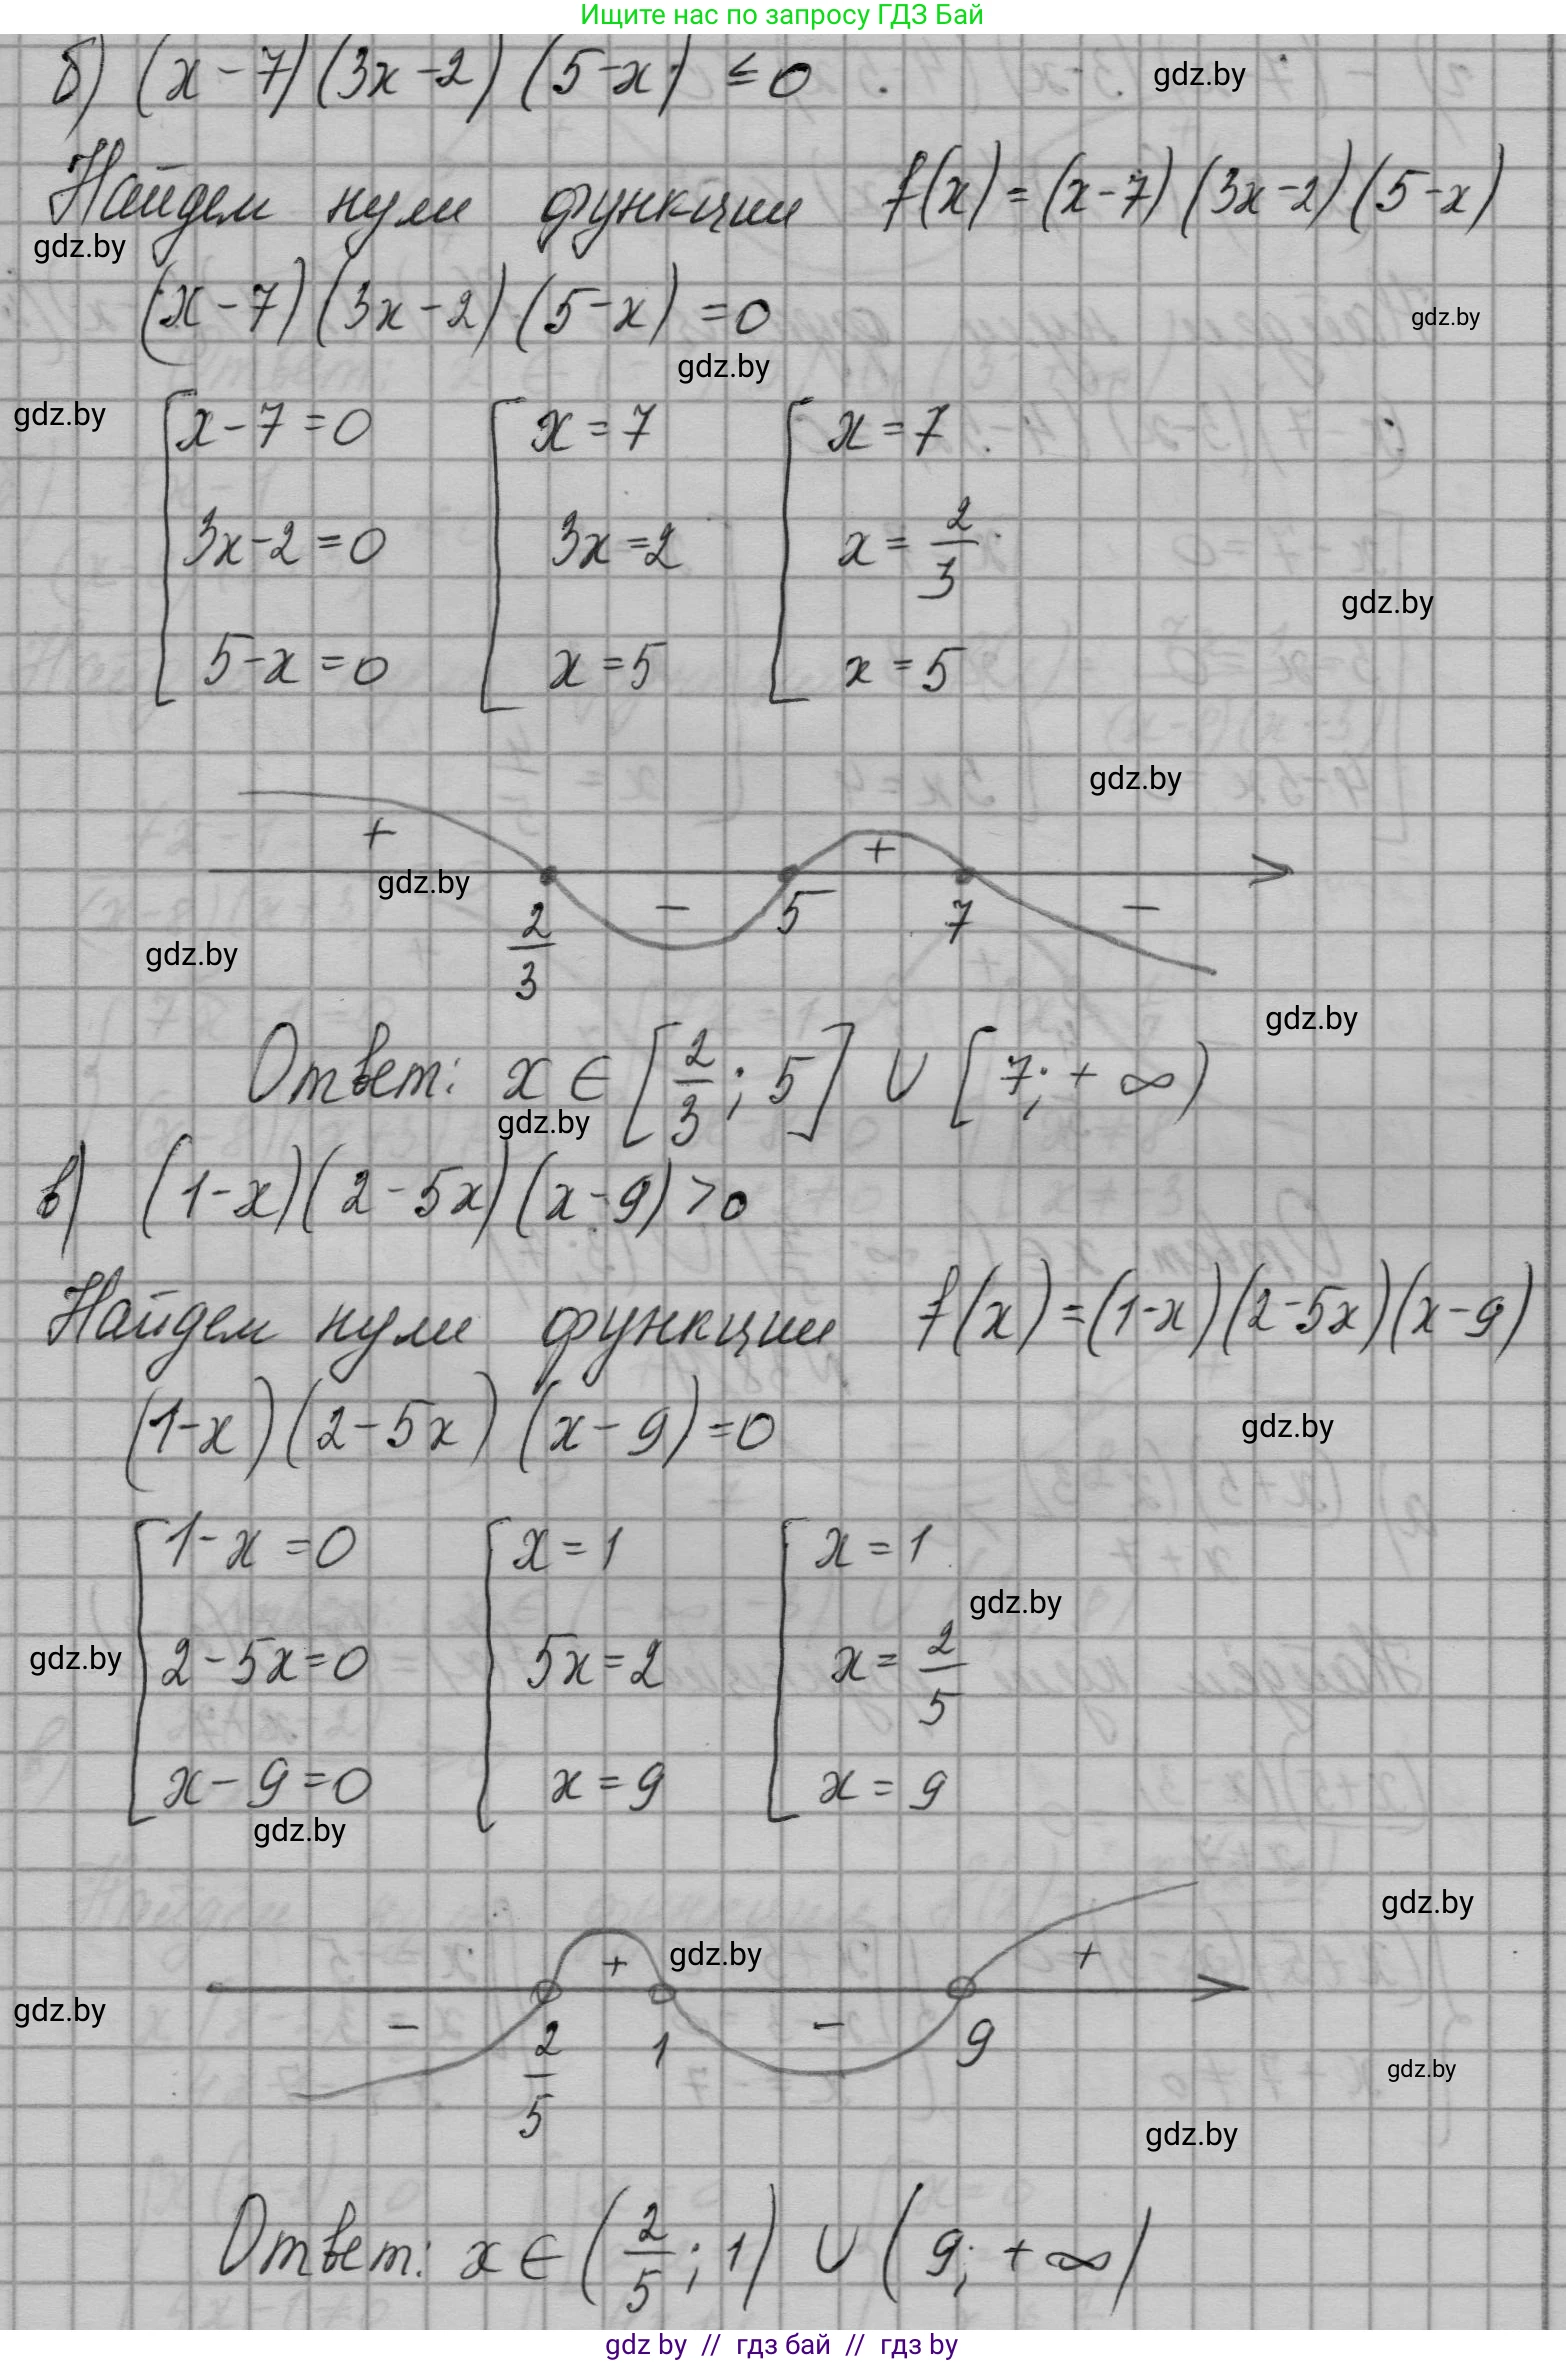 Ищите нас по запросу ГДЗ Бай
б) (x-7)(3x-2)(5-x) ≤ 0
gdz.by
Найдем нули функции f(x)=(x-7)(3x-2)(5-x)
gdz.by
(x-7)(3x-2)(5-x)=0
gdz.by
gdz.by
gdz.by
[x-7=0 [x=7 [x=7
3x-2=0 3x=2 x=2/3
gdz.by
5-x=0 x=5 x=5
gdz.by
+ - + -
gdz.by
2/3 5 7
gdz.by
gdz.by
Ответ: x ∈ [2/3; 5] ∪ [7; +∞)
gdz.by
в) (1-x)(2-5x)(x-9)>0
Найдем нули функции f(x)=(1-x)(2-5x)(x-9)
(1-x)(2-5x)(x-9)=0
gdz.by
[1-x=0 [x=1 [x=1
gdz.by
gdz.by
2-5x=0 5x=2 x=2/5
x-9=0 x=9 x=9
gdz.by
gdz.by
gdz.by
- + - +
gdz.by
2/5 1 9
gdz.by
gdz.by
Ответ: x ∈ (2/5; 1) ∪ (9; +∞)
gdz by // гдз бай // гдз by